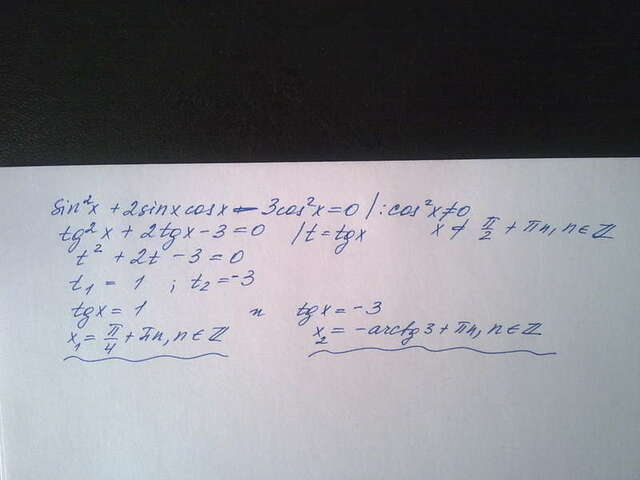 sin²x + 2sinxcosx - 3cos²x = 0 / : cos²x ≠ 0
tg²x + 2tgx - 3 = 0 / t = tgx x ≠ π/2 + πn, n ∈ ℤ
t² + 2t - 3 = 0
t₁ = 1 ; t₂ = -3
tgx = 1 и tgx = -3
x₁ = π/4 + πn, n ∈ ℤ x₂ = -arctg3 + πn, n ∈ ℤ